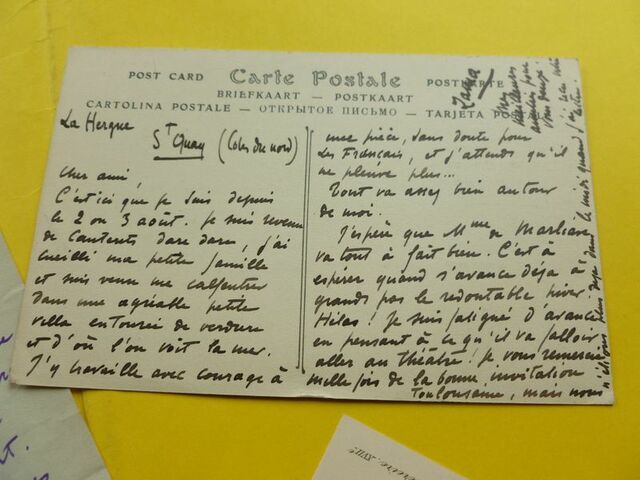 POST CARD Carte Postale POSTKARTE
BRIEFKAART — POSTKAART
CARTOLINA POSTALE — ОТКРЫТОЕ ПИСЬМО — TARJETA POSTAL
La Hergue
St Quay (Côtes du nord)
Cher ami,
C'est ici que je suis depuis
le 2 ou 3 août. Je suis revenu
de Cauterets dare dare, j'ai
cueilli ma petite famille
et suis venu me calfeutrer
dans une agréable petite
villa entourée de verdure
et d'où l'on voit la mer.
J'y travaille avec courage à
une pièce, sans doute pour
les Français, et j'attends qu'il
ne pleuve plus...
Tout va assez bien autour
de moi.
J'espère que Mme de Marliave
va tout à fait bien. C'est à
espérer quand s'avance déjà à
grands pas le redoutable hiver.
Hélas! Je suis fatigué d'avance
en pensant à ce qu'il va falloir
aller au théâtre! Je vous remercie
mille fois de la bonne invitation
Toulousaine, mais nous
n'étions plus dans le midi quand